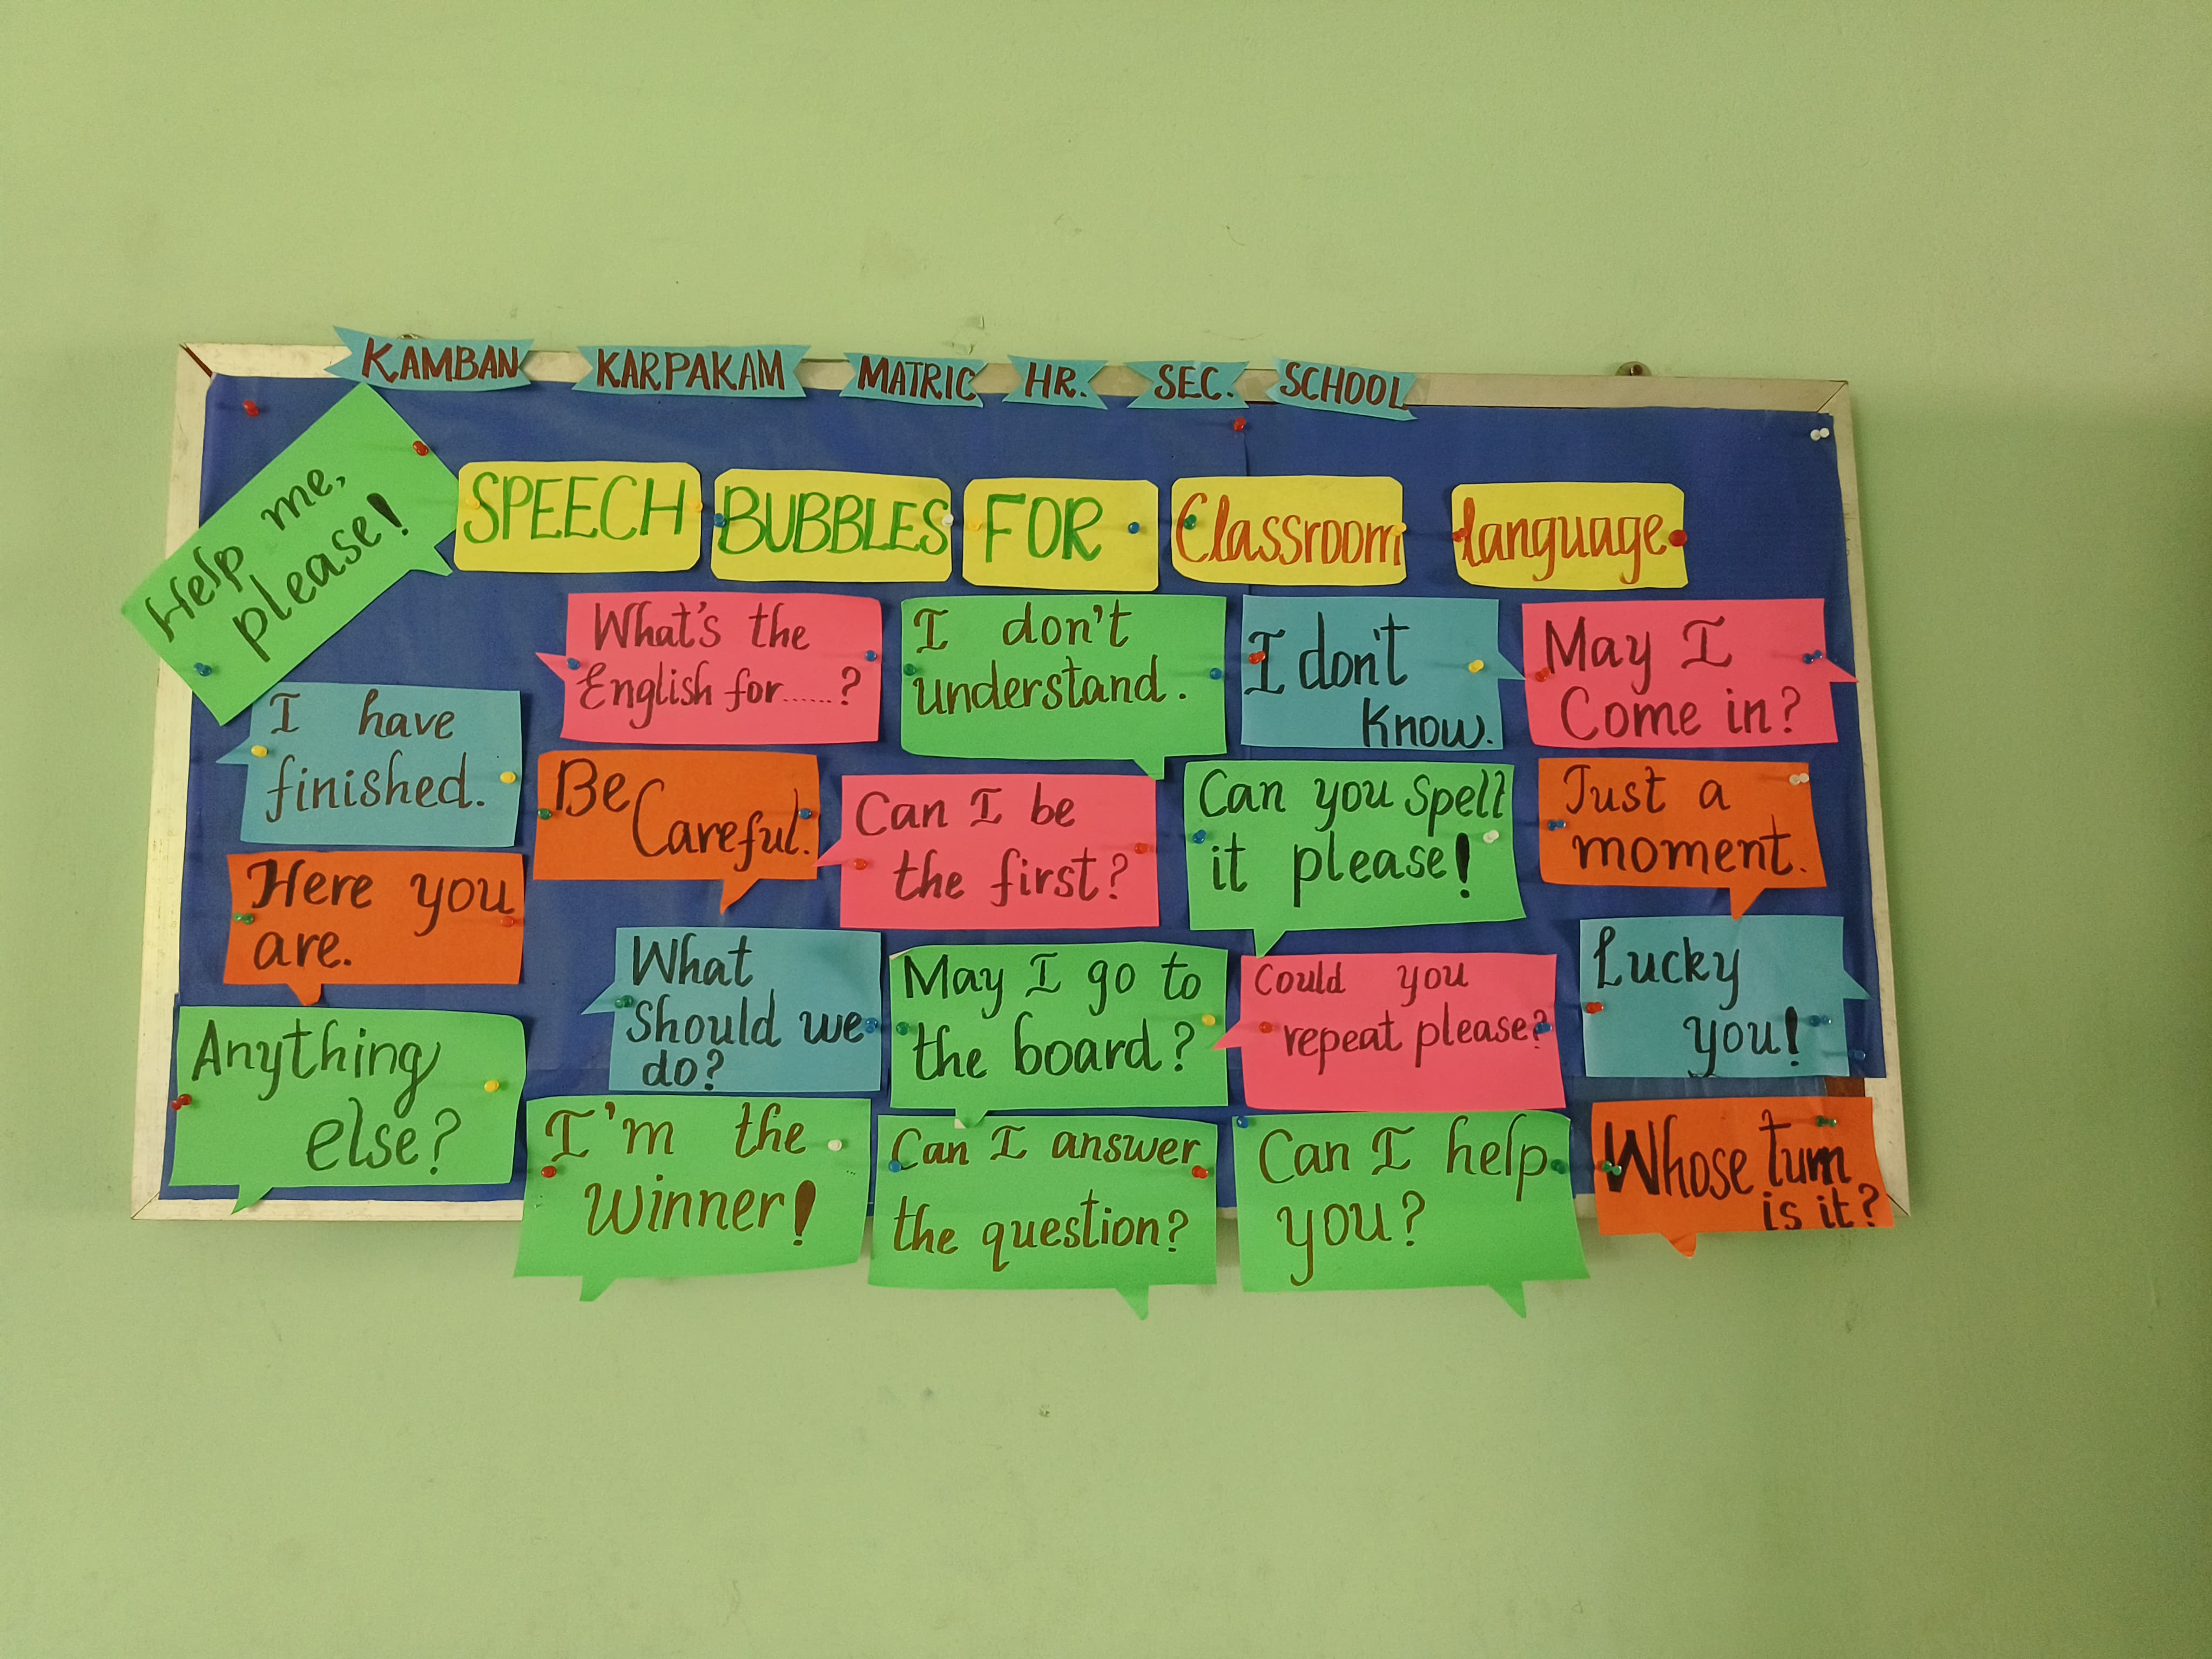 KAMBAN KARPAKAM MATRIC HR. SEC. SCHOOL
Help me,
please!
SPEECH BUBBLES FOR Classroom language
What's the
English for......?
I don't
understand.
I don't
know.
May I
Come in?
I have
finished.
Be
Careful.
Can I be
the first?
Can you spell
it please!
Just a
moment.
Here you
are.
What
should we
do?
May I go to
the board?
Could you
repeat please?
Lucky
you!
Anything
else?
I'm the
winner!
Can I answer
the question?
Can I help
you?
Whose turn
is it?